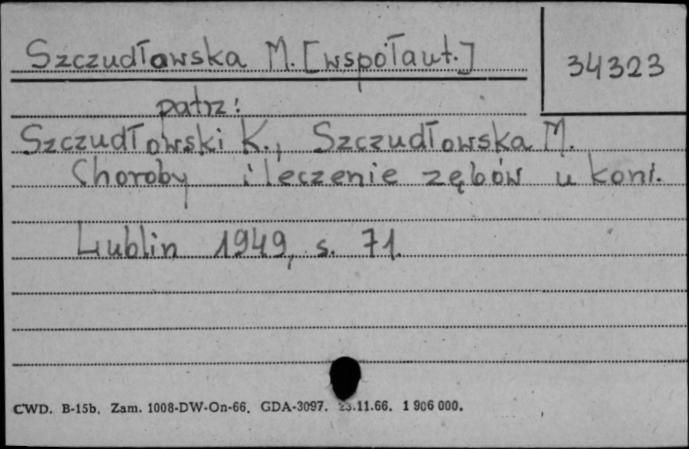 Szczudłowska M. [współaut.]
34323
patrz:
Szczudłowski K., Szczudłowska M.
Choroby i leczenie zębów u koni.
Lublin 1949, s. 71.
CWD. B-15b. Zam. 1008-DW-On-66. GDA-3097. 23.11.66. 1 906 000.